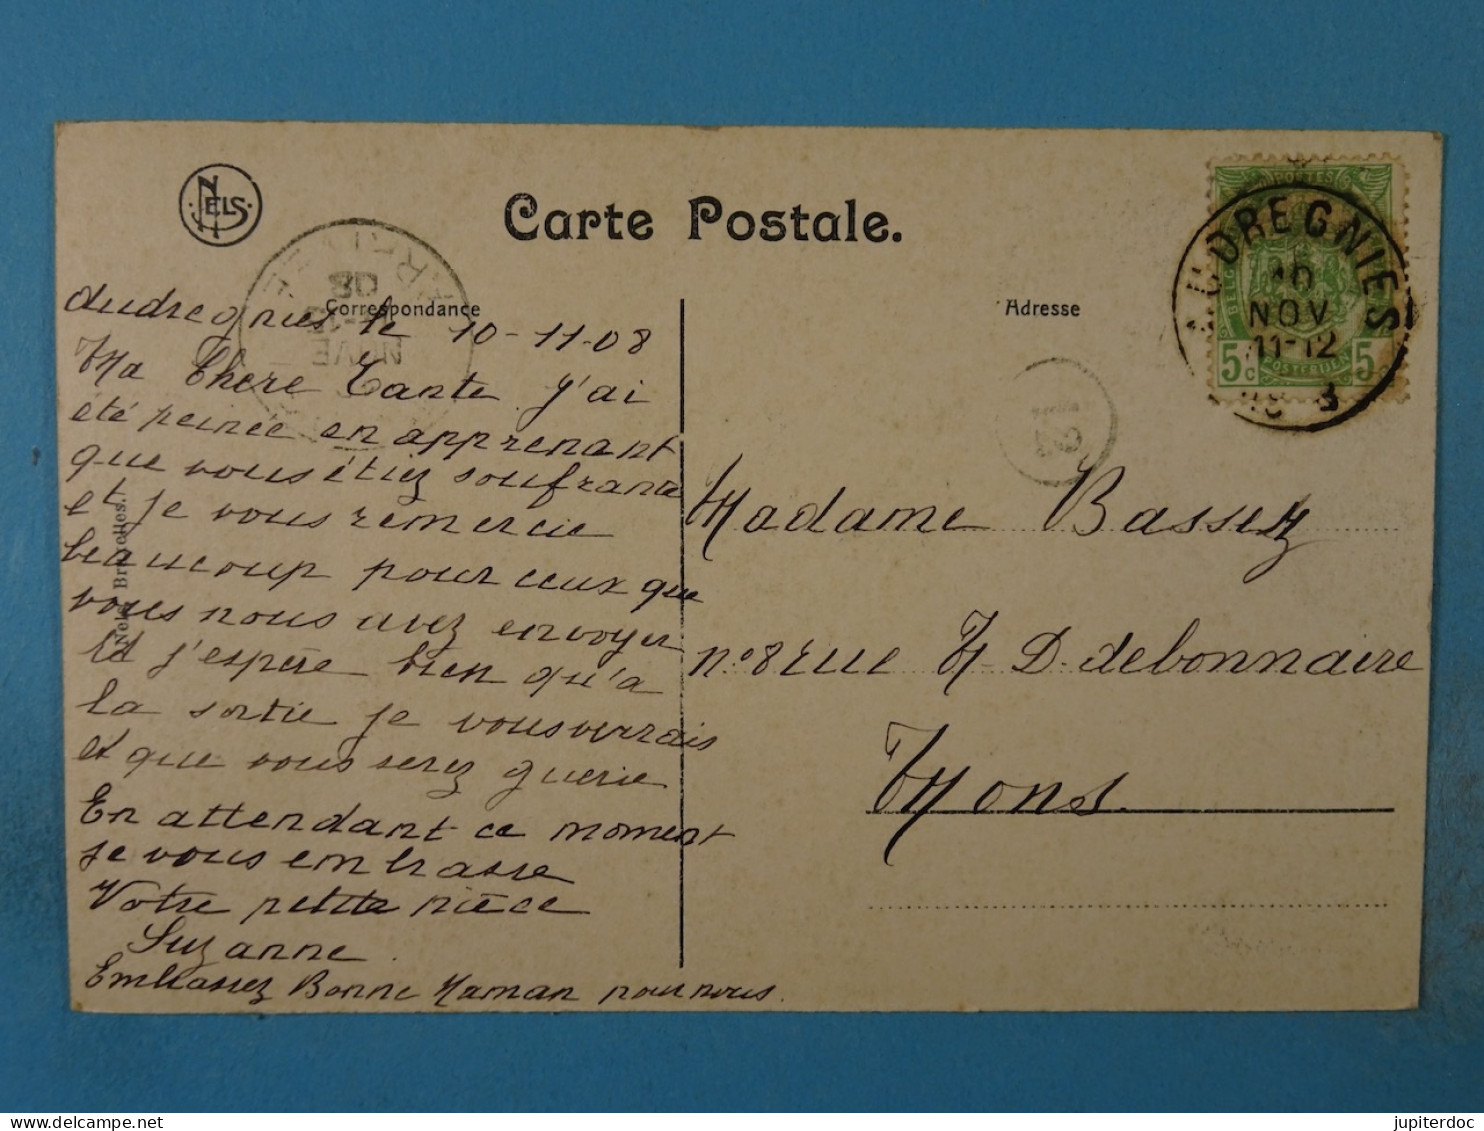 NELS
Carte Postale.
Correspondance
Adresse
AUDREGNIES
10
NOV
11-12
POSTES
5c 5c
Audregnies le 10-11-08
Ma Chere Tante J'ai
été peinée en apprenant
que vous étiez soufrante
et je vous remercie
beaucoup pour ceux que
vous nous avez envoyer
Et j'espère bien qu'a
la sortie je vous verrais
et que vous serez guerie
En attendant ce moment
je vous embrasse
Votre petite nièce
Suzanne.
Embrassez Bonne Maman pour nous.
Madame Bassez
n°8 rue H D. debonnaire
Mons.
Nels, Bruxelles.
jupiterdoc